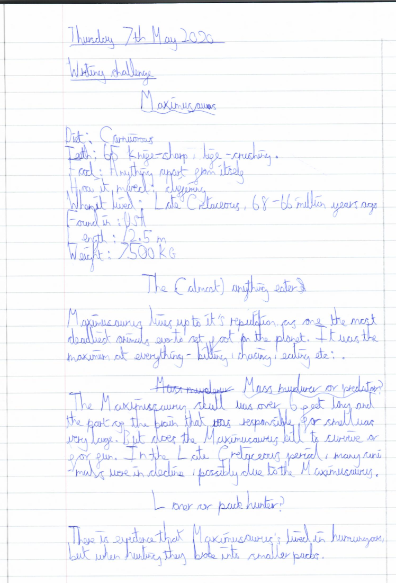 Thursday 7th May 2020
Writing challenge
Maximusaurus
Diet: Carnivorous
Teeth: 65 knife-sharp, bone-crushing.
Food: Anything apart from itself
How it moved:
When it lived: Late Cretaceous, 68-66 million years ago
Found in: USA
Length: 12.5 m
Weight: 7500 KG
The (almost) anything eater
Maximusaurus lives up to it's reputation as one the most
deadliest animals ever to set foot on the planet. It was the
maximum at everything - killing, chasing, eating etc.
Mass murderer or predator?
The Maximusaurus skull was over 6 feet long and
the part of the brain that was responsible for smell was
very large. But does the Maximusaurus kill to survive or
for fun. In the Late Cretaceous period, many ani
-mals were in decline, possibly due to the Maximusaurus.
Loner or pack hunter?
There is evidence that Maximusaurus's lived in
but when hunting they broke into smaller packs.